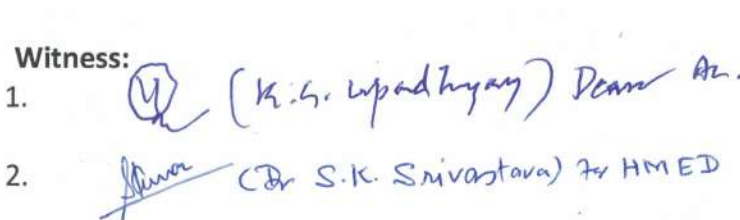 Witness:
1. (K.G. Upadhyay) Dean
2. (Dr S.K. Srivastava) For HMED